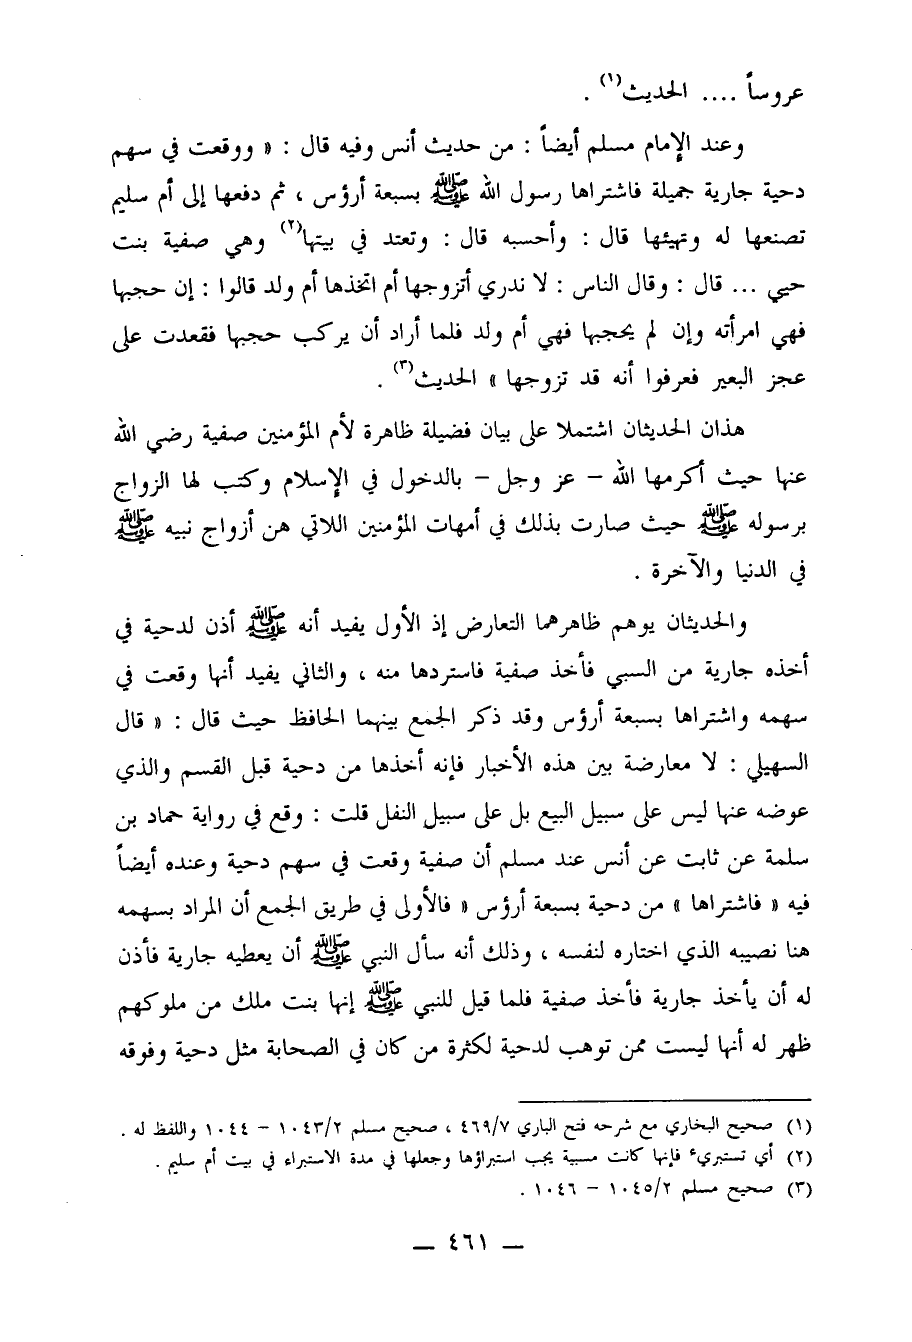 عروساً .... الحديث(١) .
وعند الإمام مسلم أيضاً : من حديث أنس وفيه قال : « ووقعت في سهم
دحية جارية جميلة فاشتراها رسول الله ﷺ بسبعة أرؤس ، ثم دفعها إلى أم سليم
تصنعها له وتهيئها قال : وأحسبه قال : وتعتد في بيتها(٢) وهي صفية بنت
حيي ... قال : وقال الناس : لا ندري أتزوجها أم اتخذها أم ولد قالوا : إن حجبها
فهي امرأته وإن لم يحجبها فهي أم ولد فلما أراد أن يركب حجبها فقعدت على
عجز البعير فعرفوا أنه قد تزوجها » الحديث(٣) .
هذان الحديثان اشتملا على بيان فضيلة ظاهرة لأم المؤمنين صفية رضي الله
عنها حيث أكرمها الله – عز وجل – بالدخول في الإسلام وكتب لها الزواج
برسوله ﷺ حيث صارت بذلك في أمهات المؤمنين اللاتي هن أزواج نبيه ﷺ
في الدنيا والآخرة .
والحديثان يوهم ظاهرهما التعارض إذ الأول يفيد أنه ﷺ أذن لدحية في
أخذه جارية من السبي فأخذ صفية فاستردها منه ، والثاني يفيد أنها وقعت في
سهمه واشتراها بسبعة أرؤس وقد ذكر الجمع بينهما الحافظ حيث قال : « قال
السهيلي : لا معارضة بين هذه الأخبار فإنه أخذها من دحية قبل القسم والذي
عوضه عنها ليس على سبيل البيع بل على سبيل النفل قلت : وقع في رواية حماد بن
سلمة عن ثابت عن أنس عند مسلم أن صفية وقعت في سهم دحية وعنده أيضاً
فيه « فاشتراها » من دحية بسبعة أرؤس « فالأولى في طريق الجمع أن المراد بسهمه
هنا نصيبه الذي اختاره لنفسه ، وذلك أنه سأل النبي ﷺ أن يعطيه جارية فأذن
له أن يأخذ جارية فأخذ صفية فلما قيل للنبي ﷺ إنها بنت ملك من ملوكهم
ظهر له أنها ليست ممن توهب لدحية لكثرة من كان في الصحابة مثل دحية وفوقه
(١) صحيح البخاري مع شرحه فتح الباري ٤٦٩/٧ ، صحيح مسلم ١٠٤٣/٢ – ١٠٤٤ واللفظ له .
(٢) أي تستبريء فإنها كانت مسبية يجب استبراؤها وجعلها في مدة الاستبراء في بيت أم سليم .
(٣) صحيح مسلم ١٠٤٥/٢ – ١٠٤٦ .
— ٤٦١ —